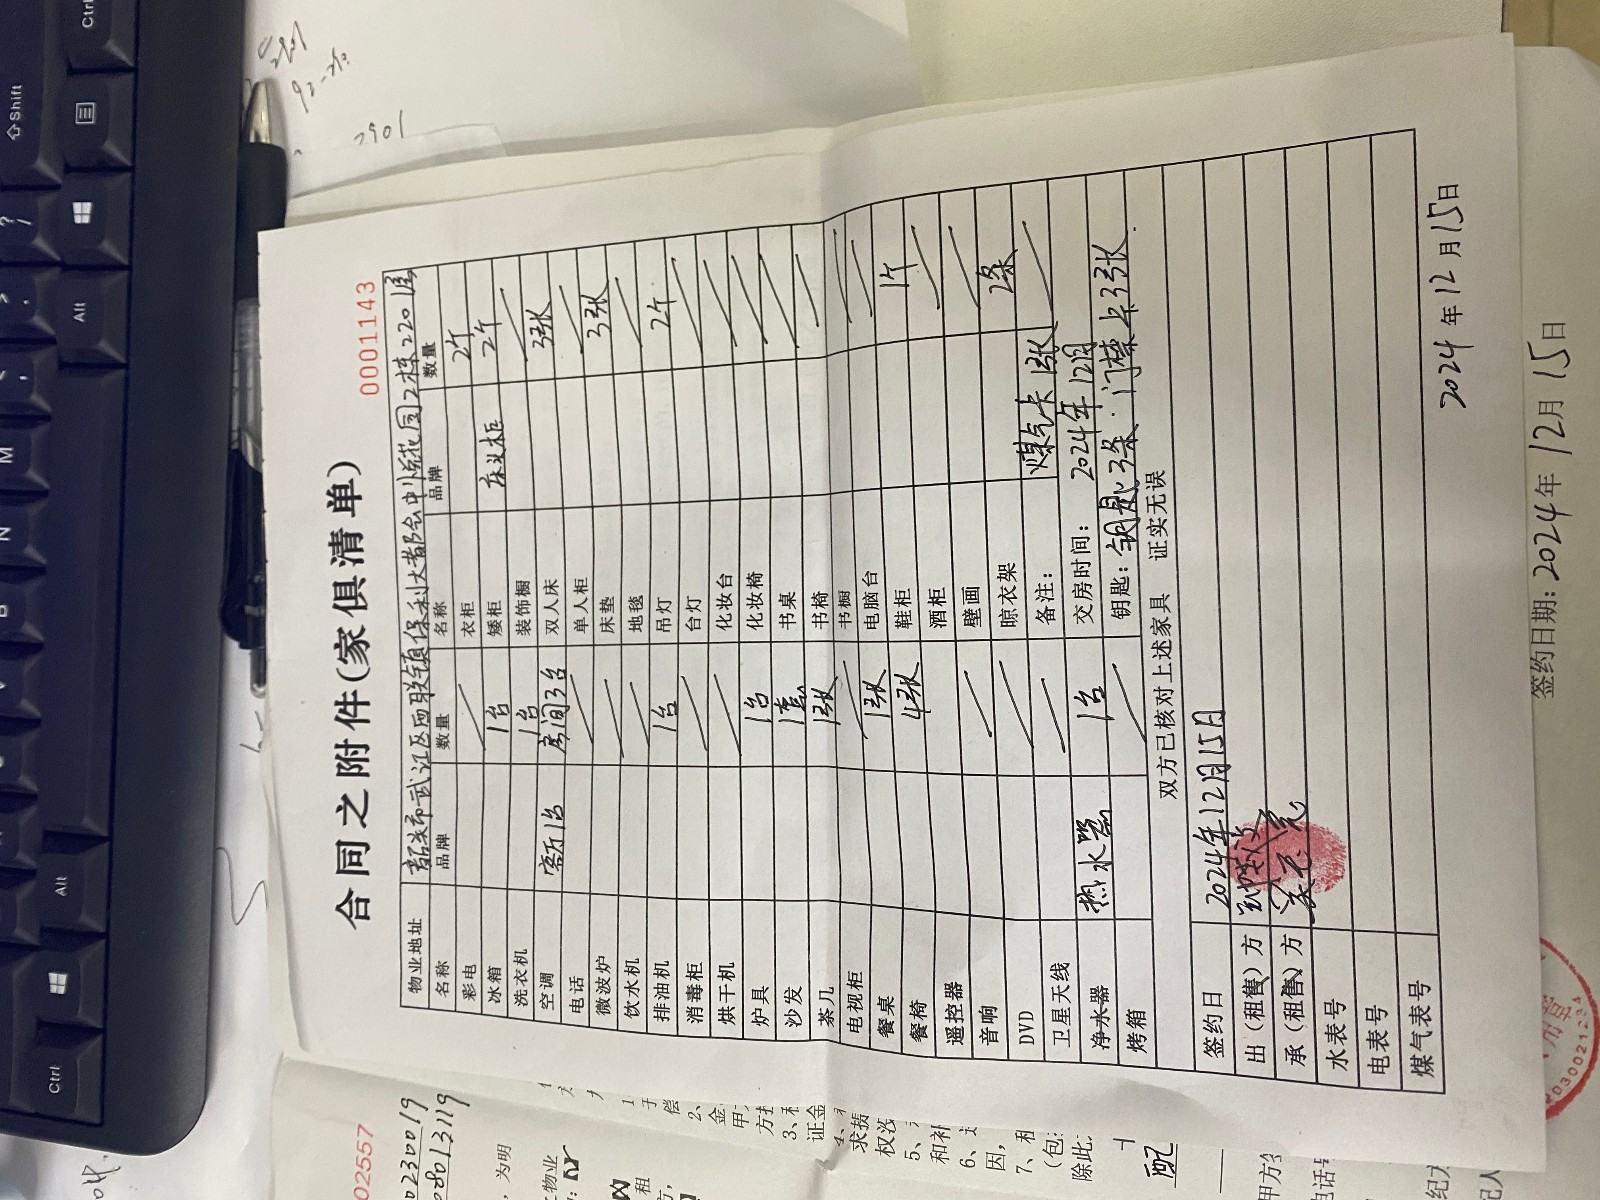 0001143
合同之附件(家俱清单)
物业地址 韶关市武江区西联镇保利大都会中悦花园2栋2201房
名称 品牌 数量 名称 品牌 数量
彩电 / 衣柜 2个
冰箱 1台 矮柜 床头柜 2个
洗衣机 1台 装饰橱 /
空调 客厅1台 房间3台 双人床 3张
电话 / 单人柜 /
微波炉 / 床垫 3张
饮水机 / 地毯 /
排油机 1台 吊灯 2个
消毒柜 / 台灯 /
烘干机 / 化妆台 /
炉具 1台 化妆椅 /
沙发 1套 书桌 /
茶几 1张 书椅 /
电视柜 / 书橱 /
餐桌 1张 电脑台 /
餐椅 4张 鞋柜 1个
遥控器 酒柜 /
音响 / 壁画 /
DVD / 晾衣架 2条
卫星天线 / 备注: 煤气卡1张 /
净水器 热水器 1台 交房时间: 2024年12月
烤箱 / 钥匙: 钥匙3条. 门禁卡3张.
双方已核对上述家具 证实无误
签约日 2024年12月15日
出(租售)方
承(租售)方
水表号
电表号
煤气表号
2024年12月15日
签约日期:2024年12月15日
02557
02300019
08013119
,为明
物业
Shift
Ctrl
Alt
M
N
B
V
Alt
Ctrl